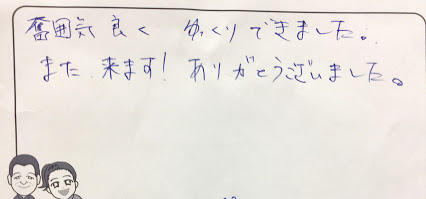 雰囲気良く ゆっくりできました。
また、来ます!ありがとうございました。